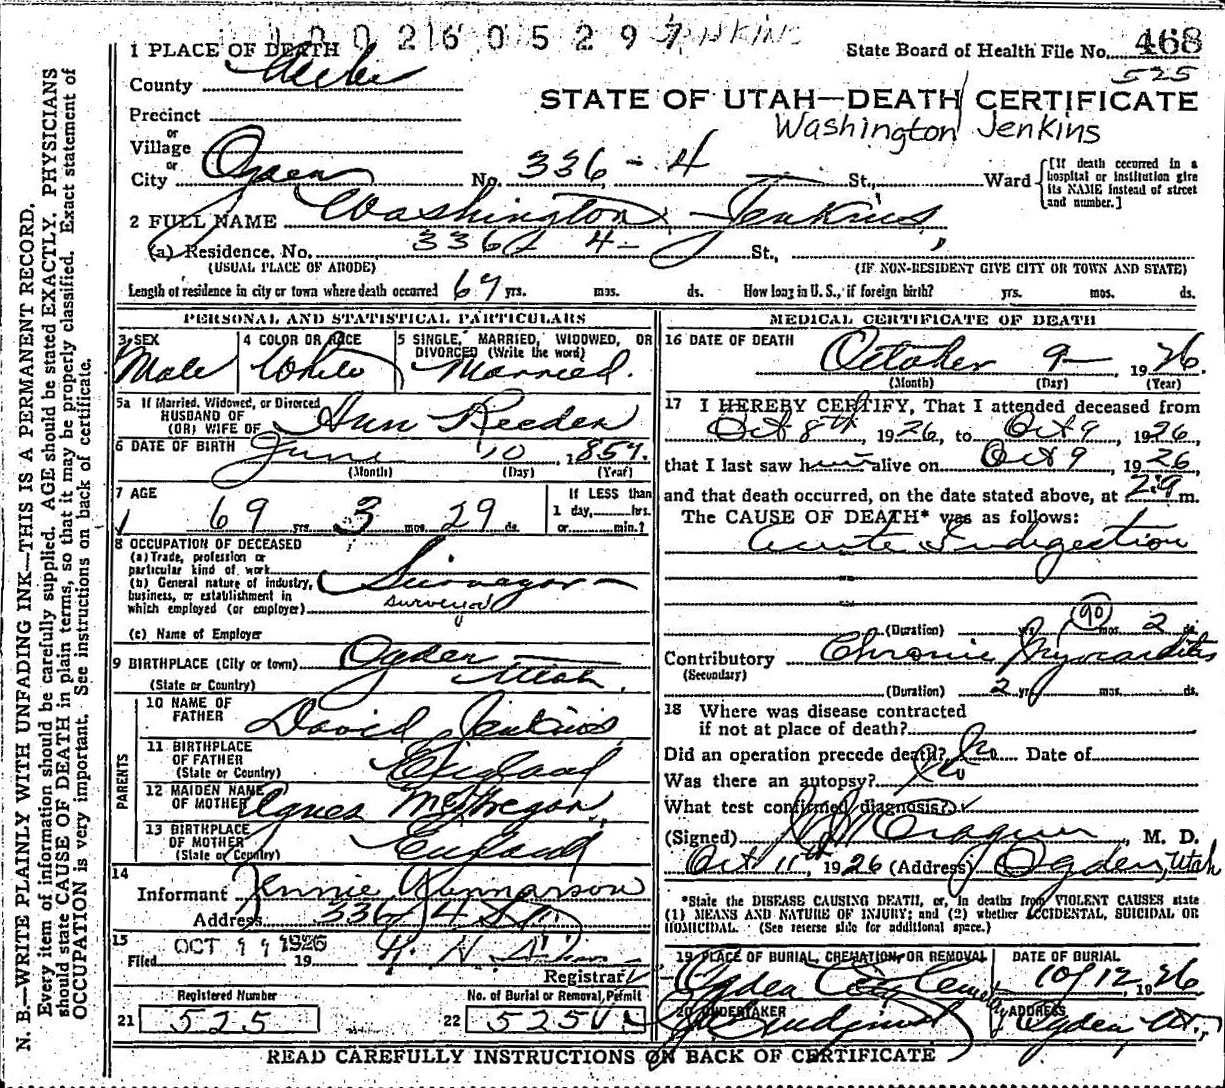 1002605297 JENKINS
1 PLACE OF DEATH
State Board of Health File No. 468
525
County Weber
STATE OF UTAH—DEATH CERTIFICATE
Washington Jenkins
Precinct
or
Village
or
City Ogden No. 336 - 4 St., Ward
[If death occurred in a hospital or institution give its NAME instead of street and number.]
2 FULL NAME Washington Jenkins
(a) Residence. No. 336 - 4 St.,
(USUAL PLACE OF ABODE) (IF NON-RESIDENT GIVE CITY OR TOWN AND STATE)
Length of residence in city or town where death occurred 69 yrs. mos. ds. How long in U. S., if foreign birth? yrs. mos. ds.
PERSONAL AND STATISTICAL PARTICULARS
3 SEX Male
4 COLOR OR RACE White
5 SINGLE, MARRIED, WIDOWED, OR DIVORCED (Write the word) Married.
5a If Married, Widowed, or Divorced
HUSBAND OF
(OR) WIFE OF Ann Reeder
6 DATE OF BIRTH June 10, 1857.
(Month) (Day) (Year)
7 AGE
69 yrs. 3 mos. 29 ds.
If LESS than
1 day, hrs.
or min.?
8 OCCUPATION OF DECEASED
(a) Trade, profession or
particular kind of work
(b) General nature of industry,
business, or establishment in
which employed (or employer)
Surveyor
surveyor
(c) Name of Employer
9 BIRTHPLACE (City or town) Ogden
(State or Country) Utah.
PARENTS
10 NAME OF
FATHER David Jenkins
11 BIRTHPLACE
OF FATHER
(State or Country) England
12 MAIDEN NAME
OF MOTHER Agnes McGregor
13 BIRTHPLACE
OF MOTHER
(State or Country) England
14
Informant Jennie Gunnarson
Address 336 4 St
15
Filed OCT 11 1926 19
Registrar
Registered Number
21 525
No. of Burial or Removal Permit
22 525
MEDICAL CERTIFICATE OF DEATH
16 DATE OF DEATH
October 9 1926.
(Month) (Day) (Year)
17 I HEREBY CERTIFY, That I attended deceased from
Oct 8th, 1926, to Oct 9, 1926,
that I last saw him alive on Oct 9, 1926,
and that death occurred, on the date stated above, at m.
The CAUSE OF DEATH* was as follows:
Acute Indigestion
90
(Duration) yrs. mos. 2 ds.
Contributory Chronic Myocarditis
(Secondary)
(Duration) 2 yrs. mos. ds.
18 Where was disease contracted
if not at place of death?
Did an operation precede death? No Date of
Was there an autopsy? No
What test confirmed diagnosis?
(Signed) , M. D.
Oct 11th, 1926 (Address) Ogden, Utah
*State the DISEASE CAUSING DEATH, or, in deaths from VIOLENT CAUSES state
(1) MEANS AND NATURE OF INJURY; and (2) whether ACCIDENTAL, SUICIDAL OR
HOMICIDAL. (See reverse side for additional space.)
19 PLACE OF BURIAL, CREMATION, OR REMOVAL
Ogden City Cemetery
DATE OF BURIAL
10/12, 1926
20 UNDERTAKER
ADDRESS
Ogden Ut.
READ CAREFULLY INSTRUCTIONS ON BACK OF CERTIFICATE
N. B.—WRITE PLAINLY WITH UNFADING INK—THIS IS A PERMANENT RECORD.
Every item of information should be carefully supplied. AGE should be stated EXACTLY. PHYSICIANS
should state CAUSE OF DEATH in plain terms, so that it may be properly classified. Exact statement of
OCCUPATION is very important. See instructions on back of certificate.